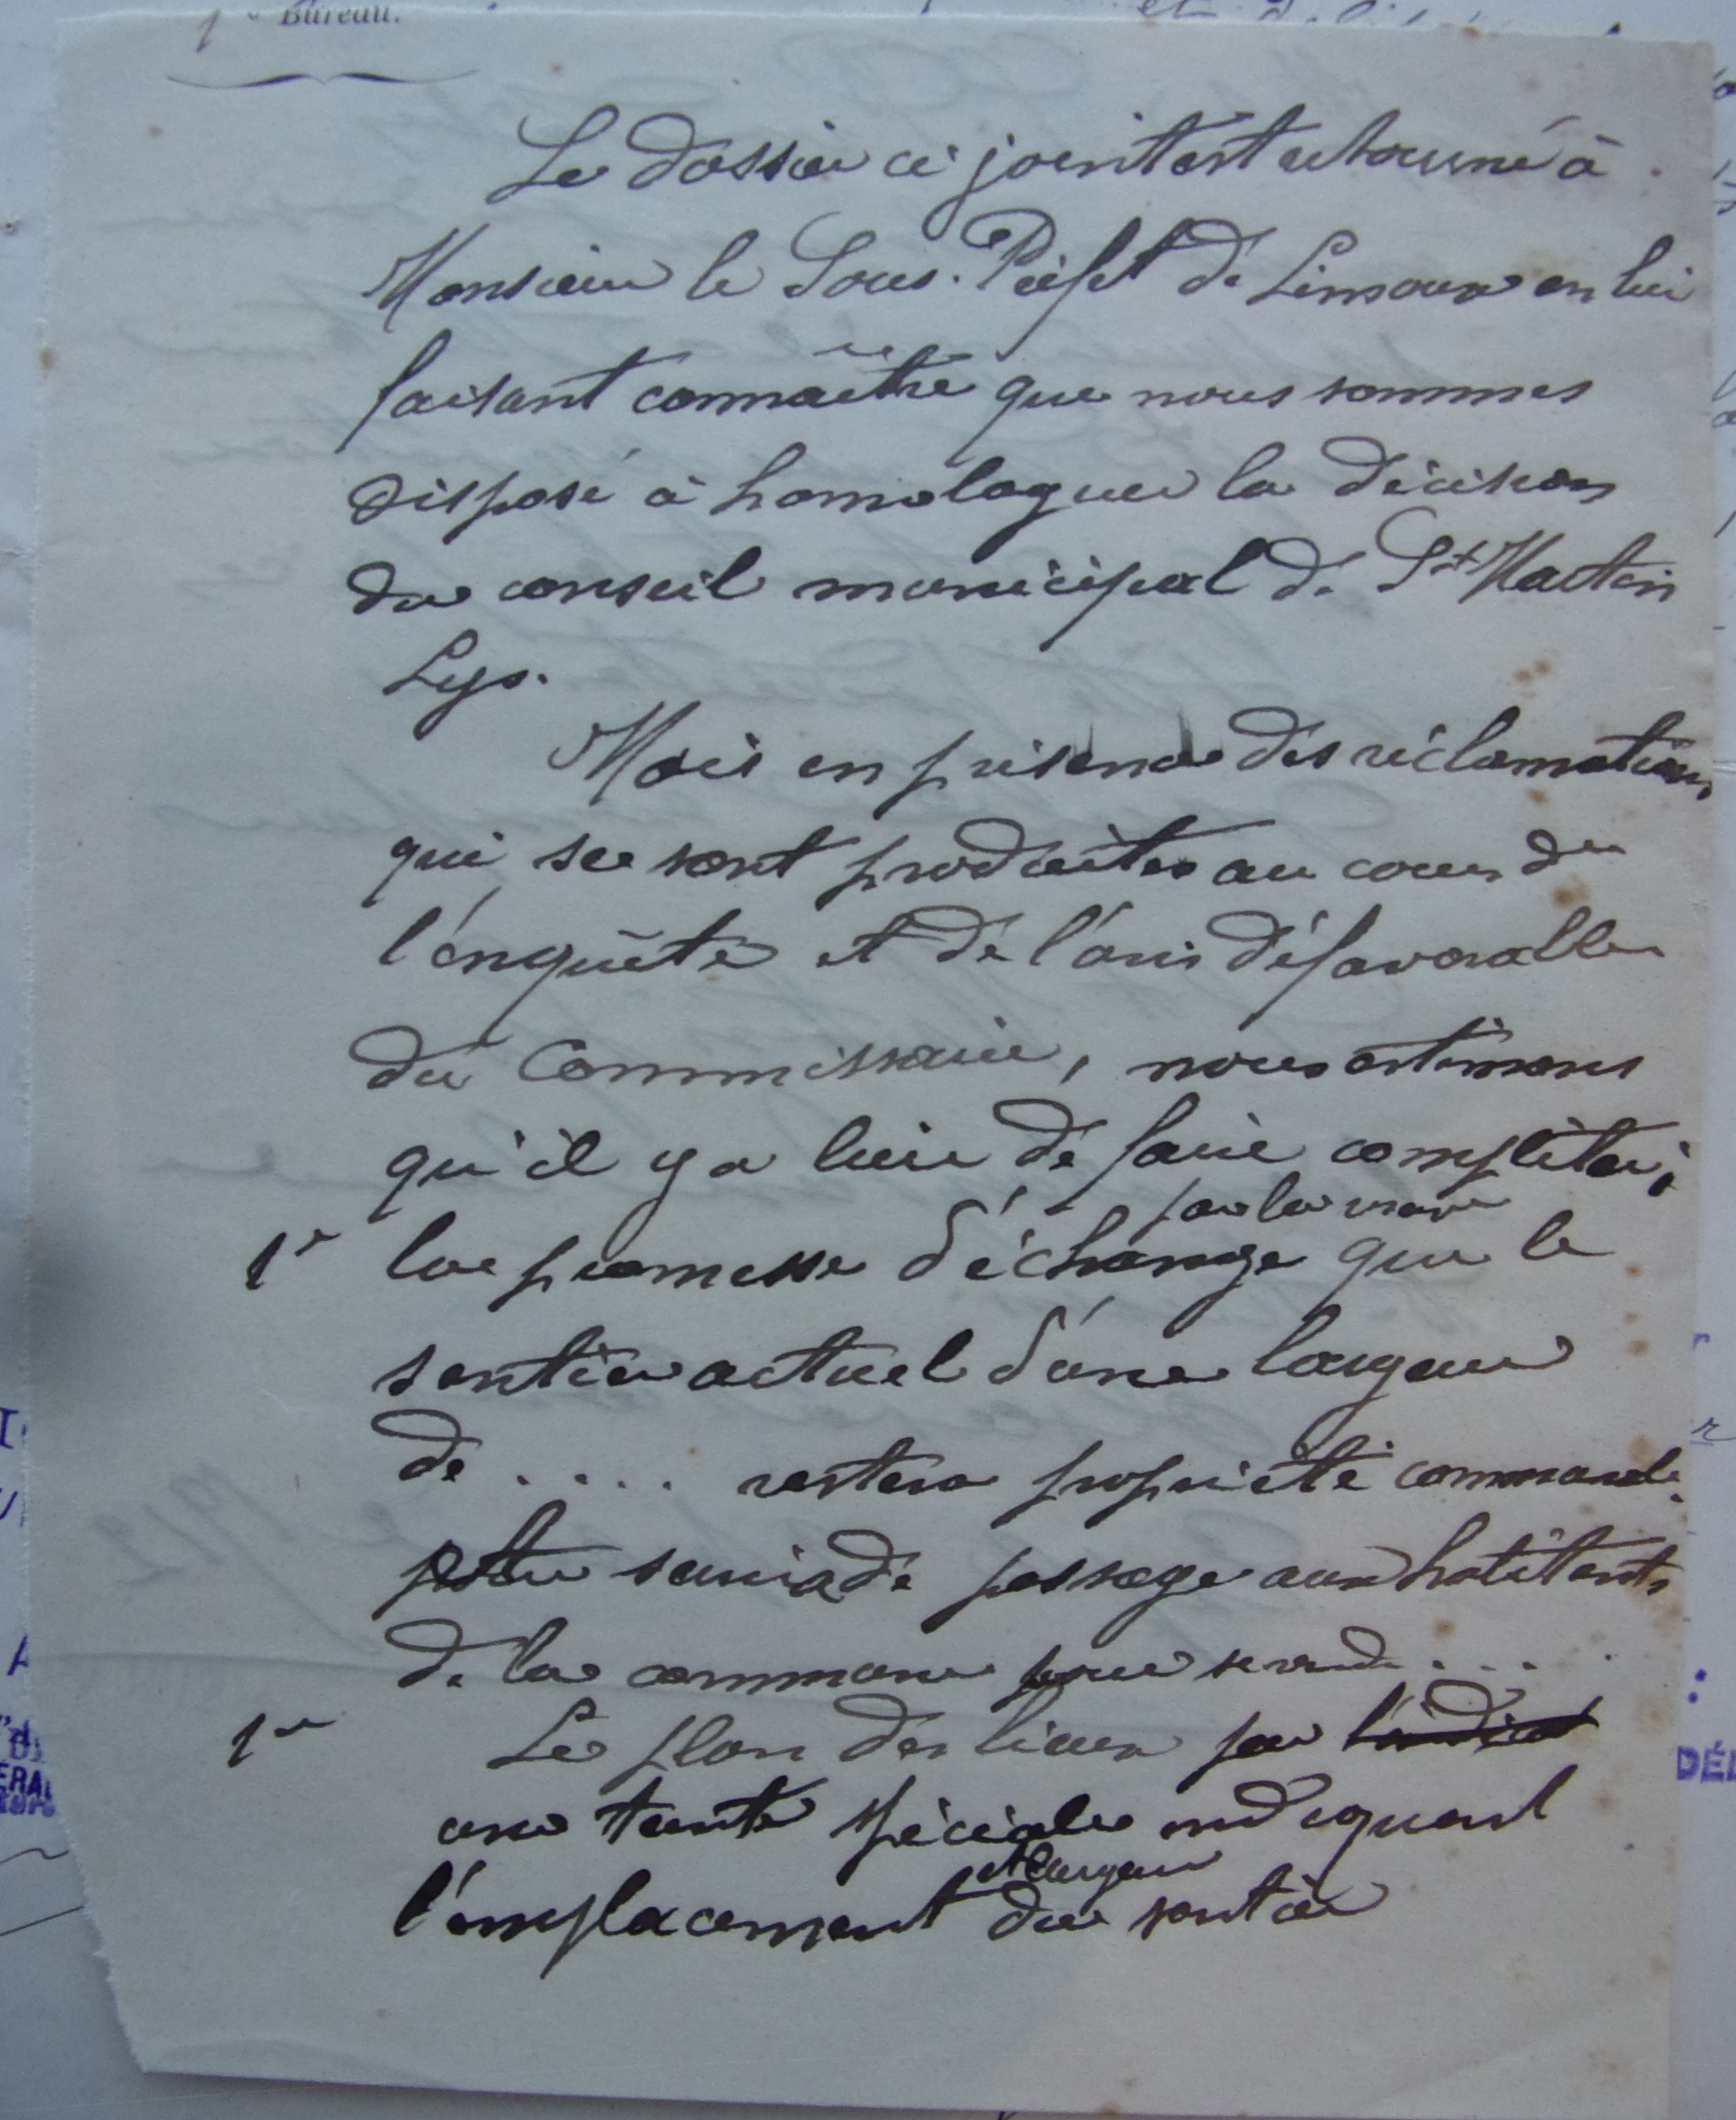 Bureau.
Le dossier ci joint est retourné à
Monsieur le Sous-Préfet de Limoux en lui
faisant connaître que nous sommes
disposé à homologuer la décision
du conseil municipal de St Martin
Lys.
Mais en présence des réclamations
qui se sont produites au cours de
l'enquête et de l'avis défavorable
du Commissaire, nous estimons
qu'il y a lieu de faire compléter :
par la
1° la promesse d'échange que le
sentier actuel d'une largeur
de .... restera propriété communale
servira de passage aux habitants
de la commune pour se rendre ....
1° Le plan des lieux par l'indicat
une teinte spéciale indiquant
et largeur
l'emplacement du sentier
DÉL